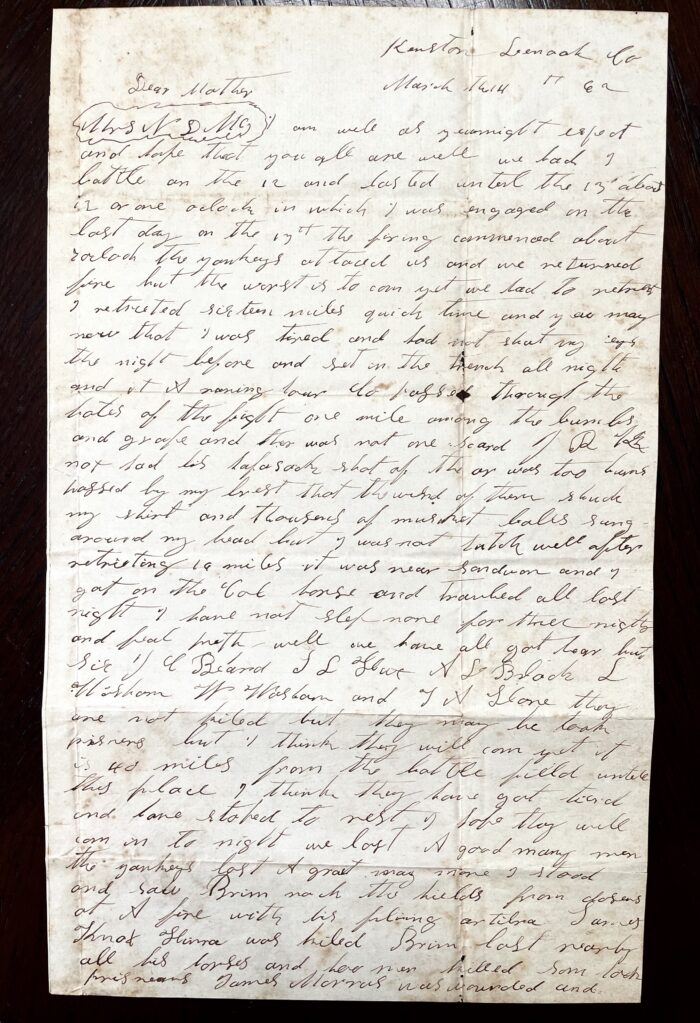 Kenston Leenoah Co
March the 14 " 62
Dear Mother
Mrs N D Mc I am well as you might expect
and hope that you all are well we had
battle on the 12 and lasted untell the 13 about
12 or one oclock in which I was engaged on the
last day on the 13th the firing commenced about
oclock the yankeys attaced us and we returned
fire but the worst is to com yet we had to retreet
I retrieted sixteen miles quick time and you may
now that I was tired and had not shut my ieys
the night before and set in the trench all nigth
and it A raning our Co passed through the
hotes of the fight one mile among the bumbs
and grape and ther was not one scard J R
nox had his hafasack shot of the or was too
passed by my brest that the wind of them struck
my shirt and thousens of muscket bales sung
around my head but I was not tutch well after
retrieting miles it was near sondown and I
got on the Col horse and traviled all last
night I have not slep none for three nights
and feal well we have all got hear but
six J C Beard J L A L Black L
Washam W Washam and J A Stone they
are not kiled but they may be took
prisners but I think they will com yet it
is 40 miles from the battle filld untill
this place I think they have got tierd
and have stoped to rest I hope they will
com in to night we lost A good many men
the yankeys lost A grat may more I stood
and saw Brim the fields from dosens
at A fire with his artilra James
Knox was kiled Brim lost nearby
all his horses and too men killed som took
prisnears James Morras was wounded and